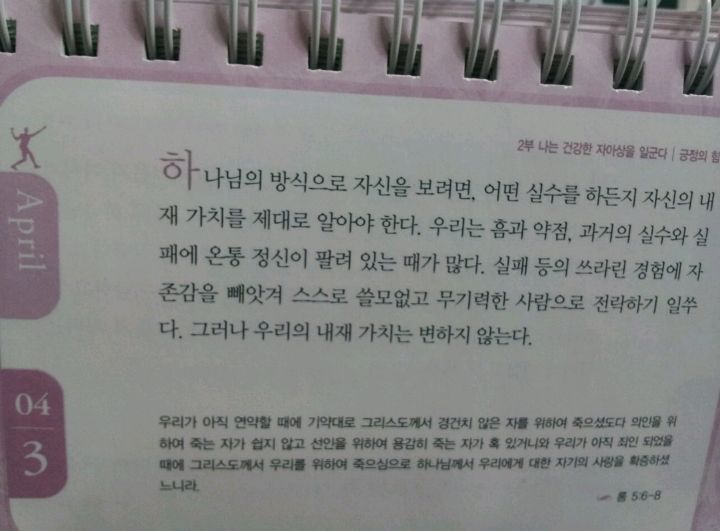 2부 나는 건강한 자아상을 일군다 | 긍정의 힘
April
하나님의 방식으로 자신을 보려면, 어떤 실수를 하든지 자신의 내
재 가치를 제대로 알아야 한다. 우리는 흠과 약점, 과거의 실수와 실
패에 온통 정신이 팔려 있는 때가 많다. 실패 등의 쓰라린 경험에 자
존감을 빼앗겨 스스로 쓸모없고 무기력한 사람으로 전락하기 일쑤
다. 그러나 우리의 내재 가치는 변하지 않는다.
04
3
우리가 아직 연약할 때에 기약대로 그리스도께서 경건치 않은 자를 위하여 죽으셨도다 의인을 위
하여 죽는 자가 쉽지 않고 선인을 위하여 용감히 죽는 자가 혹 있거니와 우리가 아직 죄인 되었을
때에 그리스도께서 우리를 위하여 죽으심으로 하나님께서 우리에게 대한 자기의 사랑을 확증하셨
느니라.
롬 5:6-8